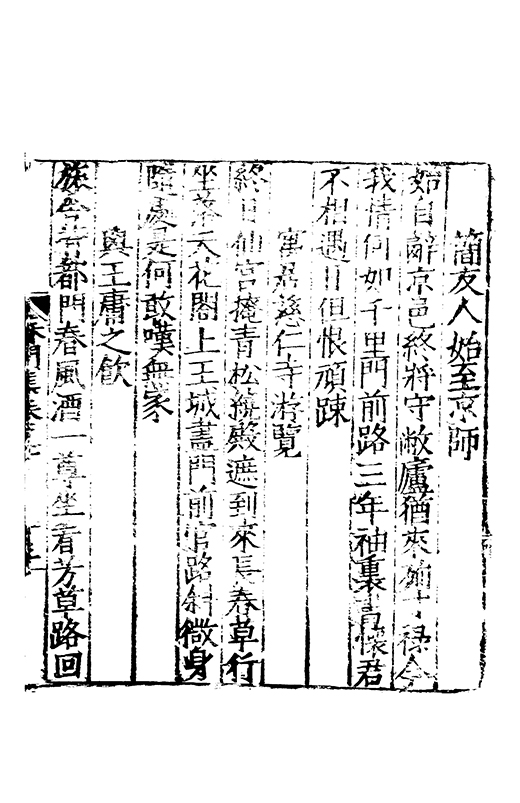 簡友人始至京師
始自辭京邑終將守敝廬猶來須寸祿今
我情何如千里門前路三年袖裏書懷君
不相遇日但恨頑踈
寓居慈仁寺游覽
終日仙宮掩青松繞殿遮到來長春草行
坐落天花閣上王城盡門前官路斜微身
隨處是何敢嘆無家
與王庸之飲
旅舍古都門春風酒一尊坐看芳草路回